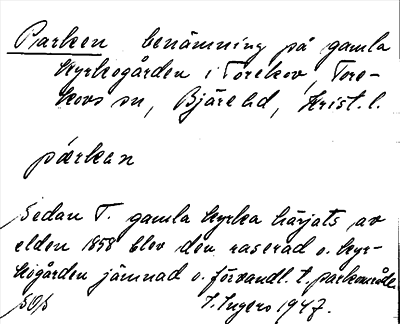 Parken benämning på gamla
kyrkogården i Torekov, Tore-
kovs sn, Bjäre hd, Krist. l.
parkan
Sedan T. gamla kyrka härjats av
elden 1858 blev den raserad o. kyr-
kogården jämnad o. förvandl. t. parkområde
I. Ingers 1947.